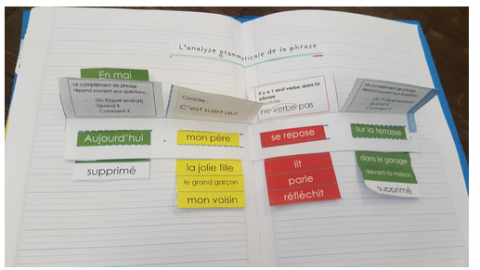 L'analyse grammaticale de la phrase
En mai
Le complément de phrase
répond souvent aux questions :
Où (lequel endroit)
Quand ?
Comment ?
Contrôle :
C'est sujet que
Il y a 1 seul verbe dans la
phrase
ne verbe pas
Comment ?
Aujourd'hui
mon père
se repose
sur la terrasse
supprimé
la jolie fille
le grand garçon
mon voisin
lit
parle
réfléchit
dans le garage
devant la maison
supprimé